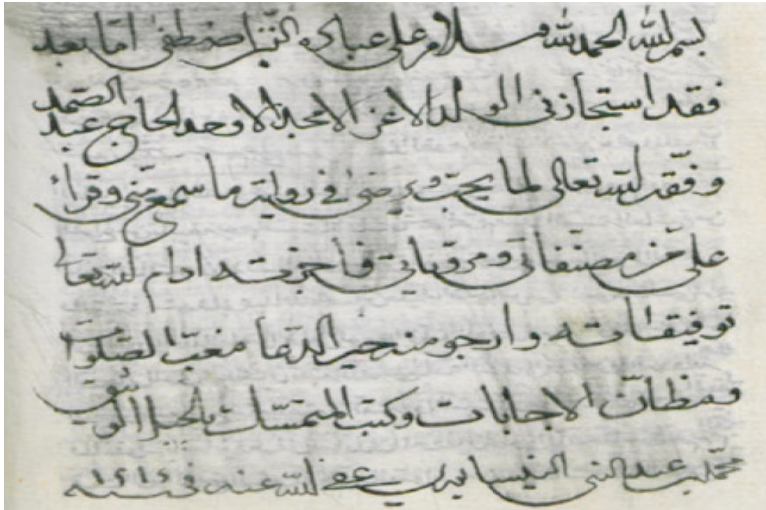 بسم الله الحمد لله وسلام على عباده الذين اصطفى اما بعد
فقد استجازنى الولد الاغر الامجد الاوحد الحاج عبد الصمد
وفقه الله تعالى لما يحب ويرضى فى رواية ما سمع منى وقرأ
على من مصنفاتى ومروياتى فاجزت له ادام الله تعالى
توفيقاته وارجو منه خير الدعا مغب الصلوات
ومظان الاجابات وكتب المتمسك بالحبل الوثيق
محمد بن عبد النبى النيسابورى عفى الله عنه فى سنة